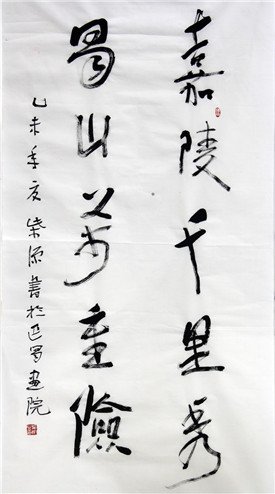 嘉陵千里秀
蜀山万重险
乙未年友柴源書於巴蜀画院